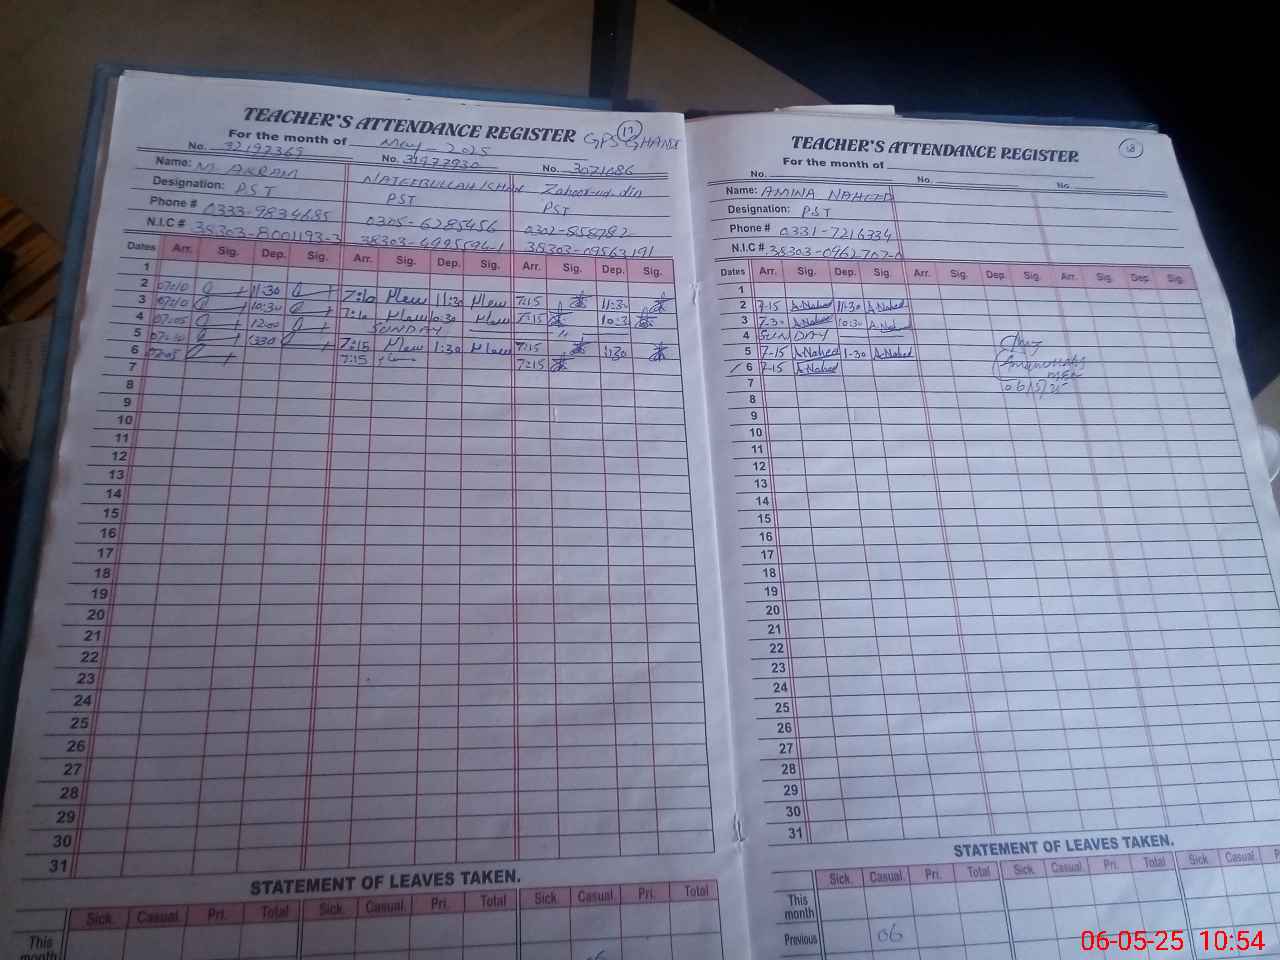 TEACHER'S ATTENDANCE REGISTER GPS GHANDI
17
For the month of May 2025
No. 32192369 No. 31977930 No. 3021686
Name: M. AKRAM NAJEEBULLAH KHAN Zaheer-ud-din
Designation: PST PST PST
Phone # 0333-9834685 0305-6285456
N.I.C #
Dates Arr. Sig. Dep. Sig. Arr. Sig. Dep. Sig. Arr. Sig. Dep. Sig.
1
2 07:10 11:30 7:10 11:30 7:15 11:30
3 07:10 10:30 7:10 10:30 7:15 10:30
4 07:05 12:00 SUNDAY
5 07:10 1:30 7:15 1:30 7:15 1:30
6 07:05 7:15 7:15
7
8
9
10
11
12
13
14
15
16
17
18
19
20
21
22
23
24
25
26
27
28
29
30
31
STATEMENT OF LEAVES TAKEN.
Sick. Casual. Pri. Total Sick. Casual. Pri. Total Sick. Casual. Pri. Total
This
month
TEACHER'S ATTENDANCE REGISTER
18
For the month of
No. No. No.
Name: AMINA NAHEED
Designation: PST
Phone # 0331-7216334
N.I.C #
Dates Arr. Sig. Dep. Sig. Arr. Sig. Dep. Sig. Arr. Sig. Dep. Sig.
1
2 7-15 A.Naheed 11:30 A.Naheed
3 7-30 A.Naheed 10:30 A.Naheed
4 SUNDAY
5 7-15 A.Naheed 1-30 A.Naheed
6 7-15 A.Naheed
06/5/25
7
8
9
10
11
12
13
14
15
16
17
18
19
20
21
22
23
24
25
26
27
28
29
30
31
STATEMENT OF LEAVES TAKEN.
Sick. Casual. Pri. Total Sick. Casual. Pri. Total Sick. Casual. P
This
month
Previous 06
06-05-25 10:54